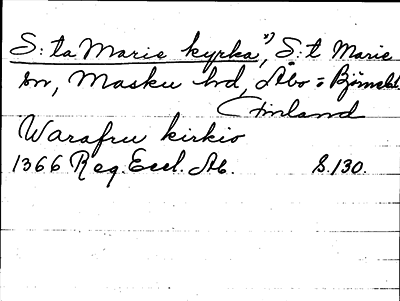 S:ta Marie kyrka", S:t Marie
sn, Masku hd, Åbo = Björneb.
Finland
Warafru kirkio
1366 Reg. Eccl. Ab. S.130.